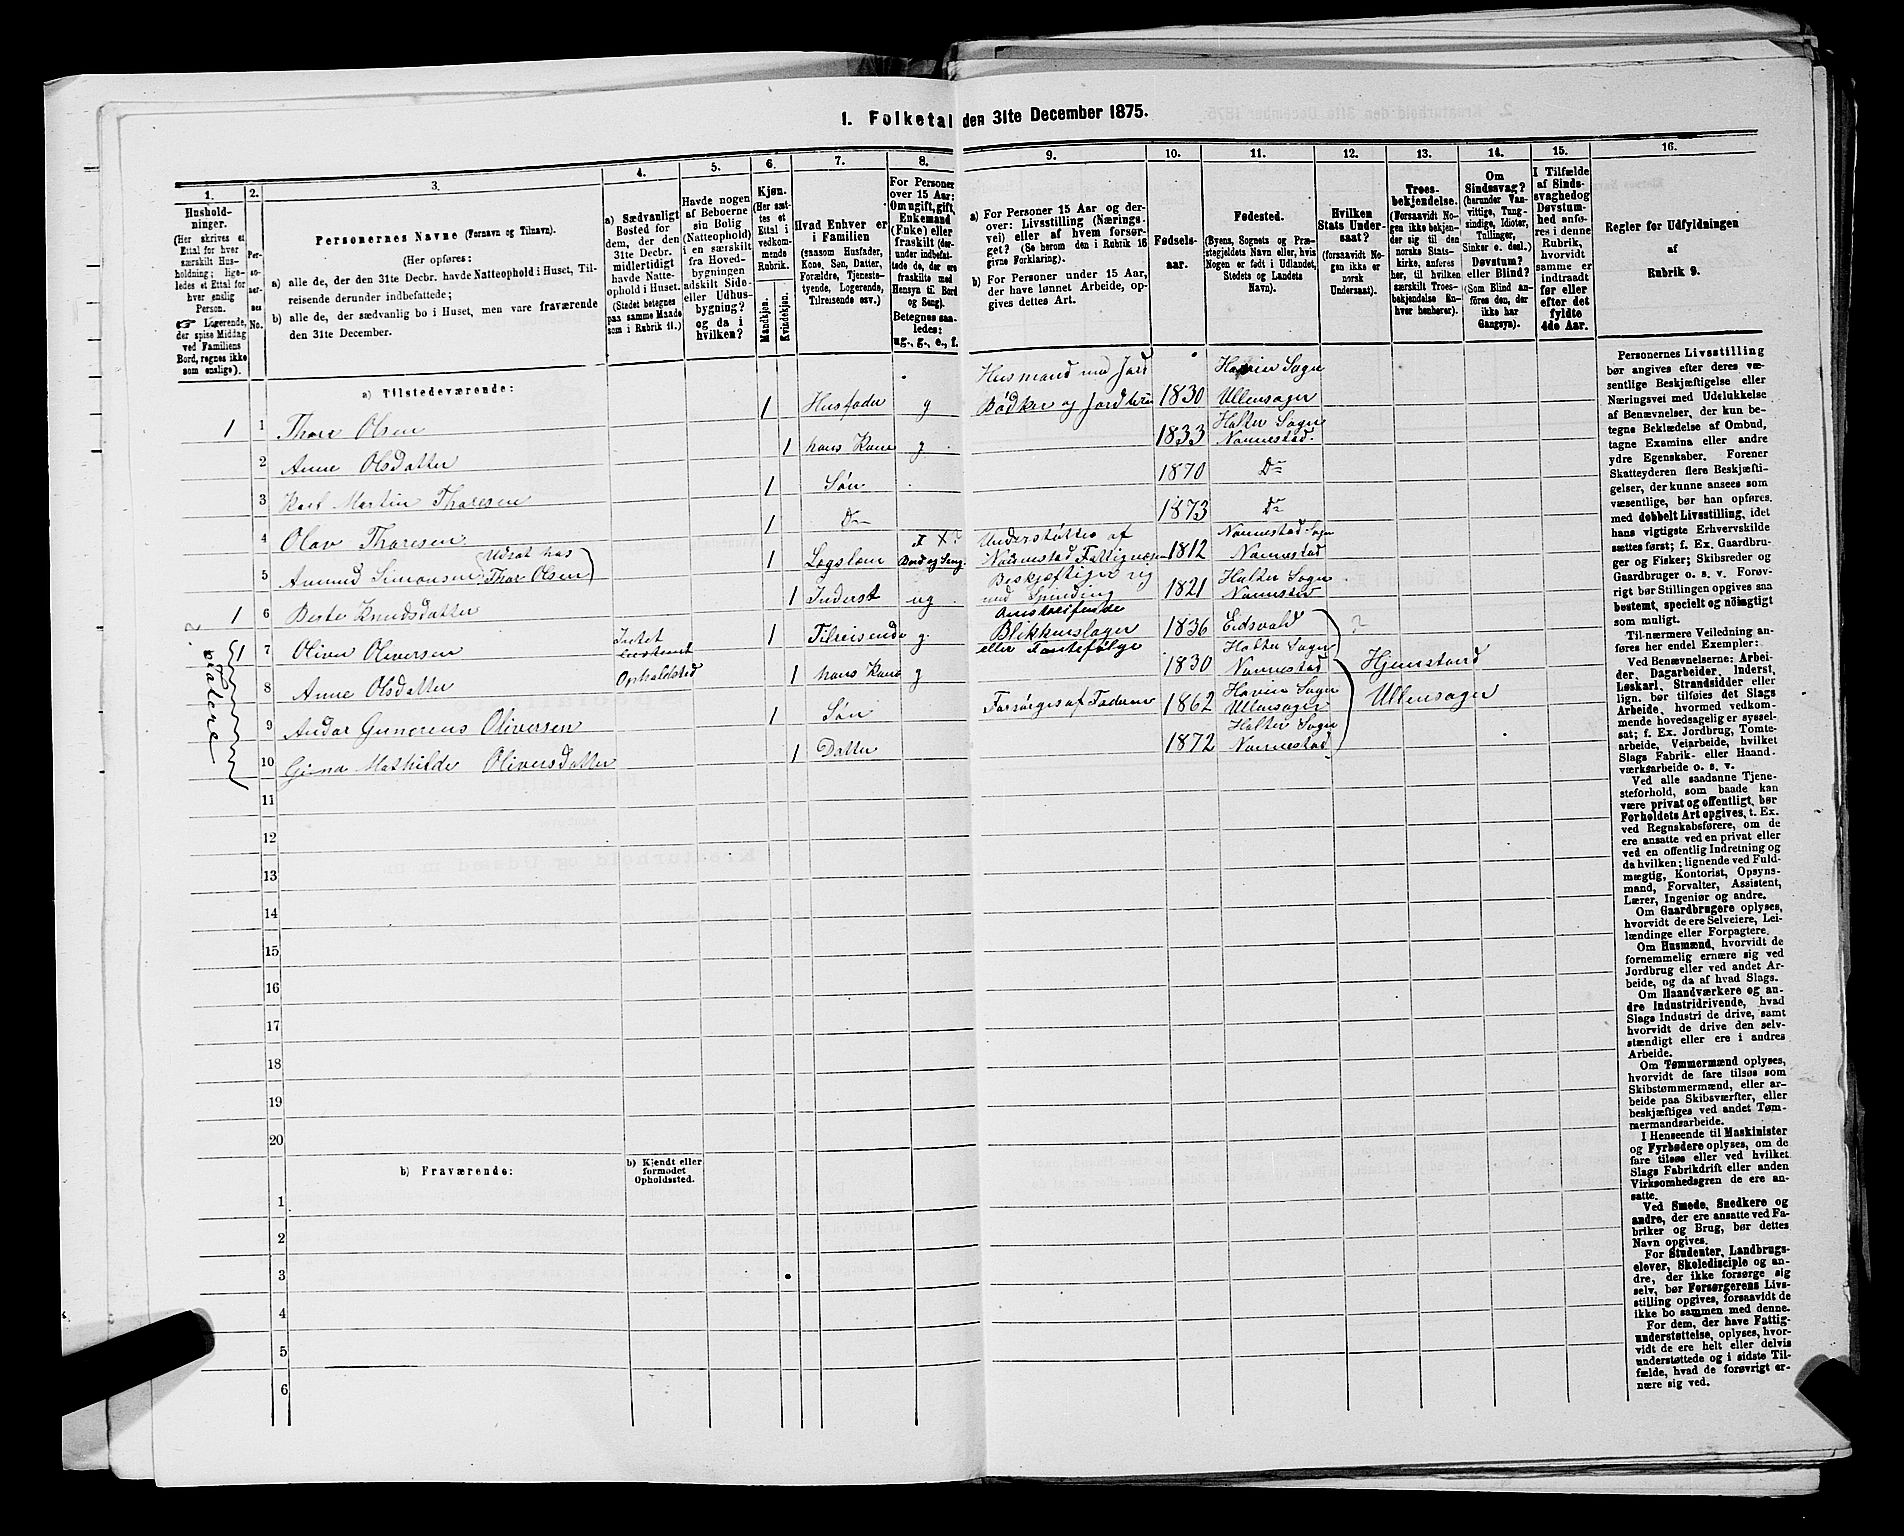 1. Folketal den 31te December 1875.
1.
2.
3.
4.
5.
6.
7.
8.
9.
10.
11.
12.
13.
14.
15.
16.
Hushold-
ninger.
(Her skrives et
Ettal for hver
særskilt Hus-
holdning; lige-
ledes et Ettal for
hver enslig
Person.
☞ Logerende,
der spise Middag
ved Familiens
Bord, regnes ikke
som enslige).
Personernes Navne (Fornavn og Tilnavn).
(Her opføres:
a) alle de, der den 31te Decbr. havde Natteophold i Huset, Til-
reisende derunder indbefattede;
b) alle de, der sædvanlig bo i Huset, men vare fraværende
den 31te December.
a) Sædvanligt
Bosted for
dem, der den
31te Decbr.
midlertidigt
havde Natte-
ophold i Huset.
(Stedet betegnes
paa samme Maade
som i Rubrik 11.)
Havde nogen
af Beboerne
sin Bolig
(Natteophold)
i en særskilt
fra Hoved-
bygningen
adskilt Side-
eller Udhus-
bygning?
og da i
hvilken?
Kjøn.
(Her sæt-
tes et
Ettal i
vedkom-
mende
Rubrik.
Mandkjøn.
Kvindekjøn.
Hvad Enhver er
i Familien
(saasom Husfader,
Kone, Søn, Datter,
Forældre, Tjeneste-
tyende, Logerende,
Tilreisende osv.)
For Personer
over 15 Aar:
Om ugift, gift,
Enkemand
(Enke) eller
fraskilt (der-
under indbefat-
tede de, der ere
fraskilte med
Hensyn til Bord
og Seng).
Betegnes saa-
ledes:
ug., g., e., f.
a) For Personer 15 Aar og der-
over: Livsstilling (Nærings-
vei) eller af hvem forsør-
get? (Se herom den i Rubrik 16
givne Forklaring).
b) For Personer under 15 Aar,
der have lønnet Arbeide, op-
gives dettes Art.
Fødsels-
aar.
Fødested.
(Byens, Sognets og Præ-
stegjeldets Navn eller, hvis
Nogen er født i Udlandet,
Stedets og Landets
Navn).
Hvilken
Stats Under-
saat?
(forsaavidt No-
gen ikke er
norsk
Undersaat).
Troes-
bekjendelse.
(Forsaavidt No-
gen ikke beken-
der sig til den
norske Stats-
kirke, anføres
her, til hvilken
særskilt Troes-
bekjendelse En-
hver henhører).
Om
Sindssvag?
(herunder Van-
vittige, Tung-
sindige, Idioter,
Tullinger,
Sinker o. desl.)
Døvstum?
eller Blind?
(Som Blind an-
føres den, der
ikke har
Gangsyn).
I Tilfælde
af Sinds-
svaghed og
Døvstum-
hed anfø-
res i denne
Rubrik,
hvorvidt
samme er
indtraadt
før eller
efter det
fyldte
4de Aar.
Regler for Udfyldningen
af
Rubrik 9.
a) Tilstedeværende:
1 1 Thor Olsen 1 Husfader g Husmand med Jord
Bødker og Jord 1830 Ullensager
2 Anne Olsdatter 1 hans Kone g 1833 Holter Sogn
Nannestad.
3 Karl Martin Thoresen 1 Søn 1870 Do
4 Olav Thoresen 1 Do 1873 Do
5 Amund Simonsen (Udsat hos
Thor Olsen) 1 Logslem Bord og Seng. Understøttes af
Nannestad Fattigvæsen 1812 Nannestad Sogn
Nannestad
1 6 Berte Knudsdatter 1 Inderst ug Beskjæftiger sig
med Spinding 1821 Holter Sogn
Nannestad
1 7 Oliver Oliversen Intet
bestemt
Opholdsted 1 Tilreisende g. Omstreifende
Blikkenslager
eller Fantefølge 1836 Eidsvold ?
8 Anne Olsdatter 1 hans Kone g 1830 Holter Sogn
Nannestad
9 Andor Gunerius Oliversen 1 Søn Forsørges af Faderen 1862 Hovin Sogn
Ullensager
10 Gina Mathilde Oliversdatter 1 Datter 1872 Holter Sogn
Nannestad
Hjemstand
Ullensager
11
12
13
14
15
16
17
18
19
20
b) Fraværende:
b) Kjendt eller
formodet
Opholdssted.
1
2
3
4
5
6
Personernes Livsstilling
bør angives efter deres væ-
sentlige Beskjæftigelse eller
Næringsvei med Udelukkelse
af Benævnelser, der kun be-
tegne Beklædelse af Ombud,
tagne Examina eller andre
ydre Egenskaber. Forener
Skatteyderen flere Beskjæfti-
gelser, der kunne ansees som
væsentlige, bør han opføres
med dobbelt Livsstilling, idet
hans vigtigste Erhvervskilde
sættes først; f. Ex. Gaardbru-
ger og Fisker; Skibsreder og
Gaardbruger o. s. v. Forøv-
rigt bør Stillingen opgives saa
bestemt, specielt og nøiagtigt
som muligt.
Til nærmere Veiledning an-
føres her endel Exempler:
Ved Benævnelserne: Arbei-
der, Dagarbeider, Inderst,
Løskarl, Strandsidder eller
lign. bør tilføies det Slags
Arbeide, hvormed vedkom-
mende hovedsagelig er syssel-
sat; f. Ex. Jordbrug, Tomte-
arbeide, Veiarbeide, hvilket
Slags Fabrik- eller Haand-
værksarbeide o. s. v.
Ved alle saadanne Tjene-
steforhold, som baade kan
være privat og offentligt, bør
Forholdets Art opgives, t. Ex.
ved Regnskabsførere, om de
ere ansatte ved en privat eller
ved en offentlig Indretning og
da hvilken; lignende ved Fuld-
mægtig, Kontorist, Opsyns-
mand, Forvalter, Assistent,
Lærer, Ingeniør og andre.
Om Gaardbrugere oplyses,
hvorvidt de ere Selveiere, Lei-
lændinge eller Forpagtere.
Om Husmænd, hvorvidt de
fornemmelig ernære sig ved
Jordbrug eller ved andet Ar-
beide, og da af hvad Slags.
Om Haandværkere og an-
dre Industridrivende, hvad
Slags Industri de drive, samt
hvorvidt de drive den selv-
stændigt eller ere i andres
Arbeide.
Om Tømmermænd oplyses,
hvorvidt de fare tilsøs som
Skibstømmermænd, eller ar-
beide paa Skibsværfter, eller
beskjæftiges ved andet Tøm-
mermandsarbeide.
I Henseende til Maskinister
og Fyrbødere oplyses, om de
fare tilsøs eller ved hvilket
Slags Fabrikdrift eller anden
Virksomhedsgren de ere an-
satte.
Ved Smede, Snedkere og
andre, der ere ansatte ved Fa-
briker og Brug, bør dettes
Navn opgives.
For Studenter, Landbrugs-
elever, Skoledisciple og an-
dre, der ikke forsørge sig
selv, bør Forsørgerens Livs-
stilling opgives, forsaavidt de
ikke bo sammen med denne.
For dem, der have Fattig-
understøttelse, oplyses, hvor-
vidt de ere helt eller delvis
understøttede og i sidste Til-
fælde, hvad de forøvrigt er-
nære sig ved.